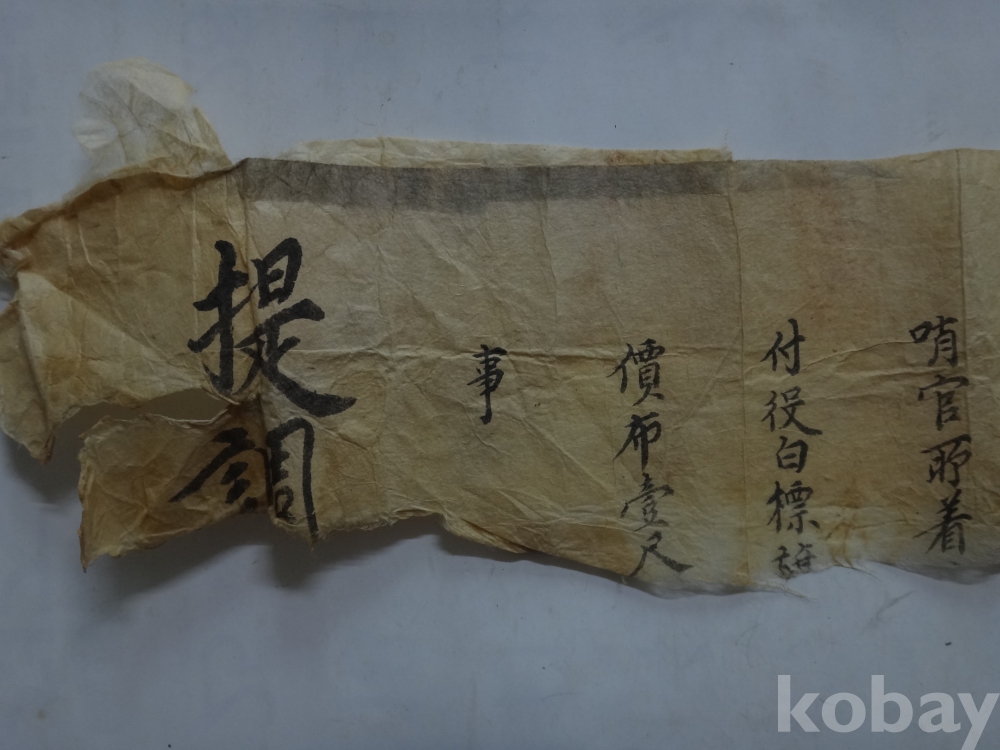 哨官所着
付役白標旗
價布壹尺
事
提調
kobay